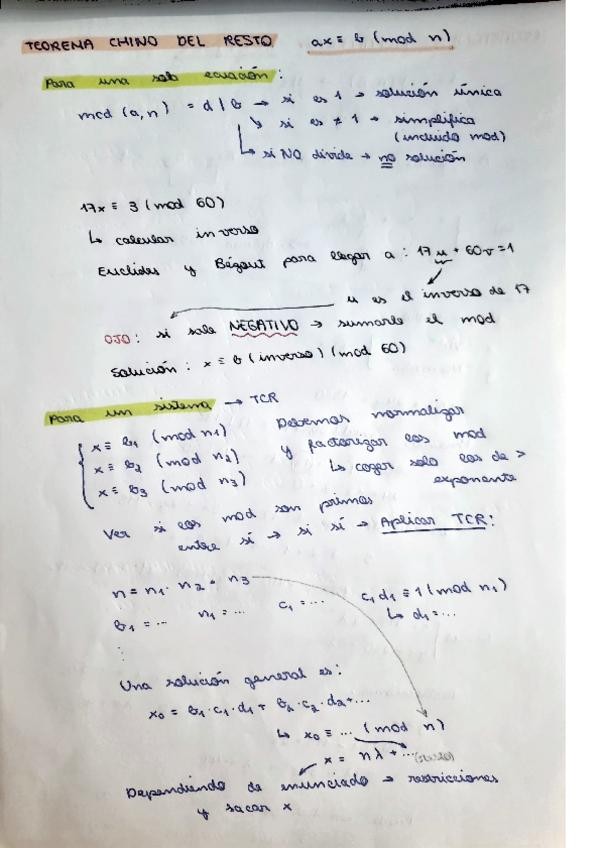 TEOREMA CHINO DEL RESTO ax ≡ b (mod n)
Para una sola ecuación:
mcd (a,n) = d | b → si es 1 → solución única
↳ si es ≠ 1 → simplifica
(incluido mod)
↳ si NO divide → no solución
17x ≡ 3 (mod 60)
↳ calcular inverso
Euclides y Bézout para llegar a : 17u + 60v = 1
u es el inverso de 17
OJO: si sale NEGATIVO → sumarle el mod
Solución : x ≡ b (inverso) (mod 60)
Para un sistema → TCR
x ≡ b1 (mod n1)
x ≡ b2 (mod n2)
x ≡ b3 (mod n3)
Debemos normalizar
y factorizar los mod
↳ coger solo los de >
exponente
Ver si los mod son primos
entre sí → si sí → Aplicar TCR:
n = n1 · n2 · n3
b1 = ... n1 = ... c1 = ... c1d1 ≡ 1 (mod n1)
↳ d1 = ...
⋮
Una solución general es:
x0 = b1·c1·d1 + b2·c2·d2 + ...
↳ x0 ≡ ... (mod n)
x = nλ + ...
Dependiendo de enunciado → restricciones
y sacar x